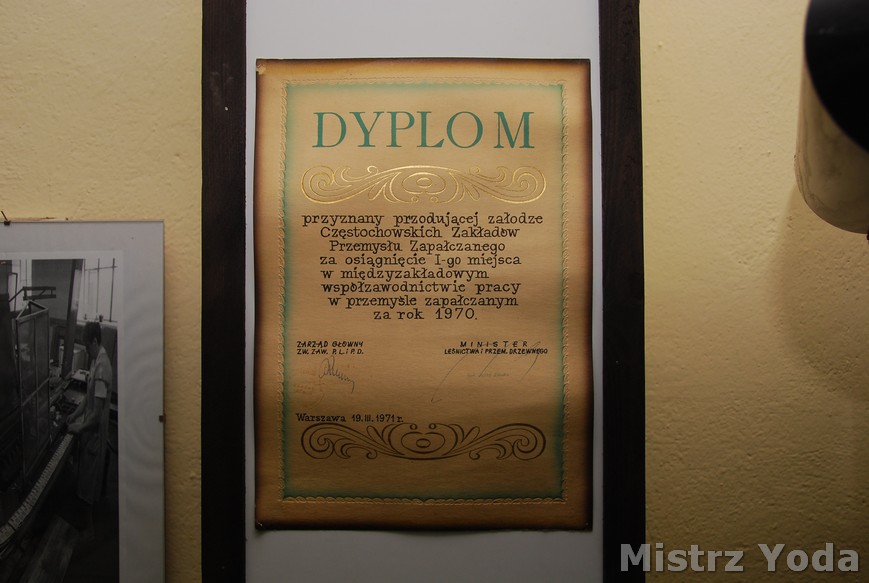 DYPLOM
przyznany przodującej załodze
Częstochowskich Zakładów
Przemysłu Zapałczanego
za osiągnięcie I-go miejsca
w międzyzakładowym
współzawodnictwie pracy
w przemyśle zapałczanym
za rok 1970.
ZARZĄD GŁÓWNY
ZW. ZAW. P. L. i P. D.
MINISTER
LEŚNICTWA I PRZEM. DRZEWNEGO
Warszawa 19.III.1971 r.
Mistrz Yoda